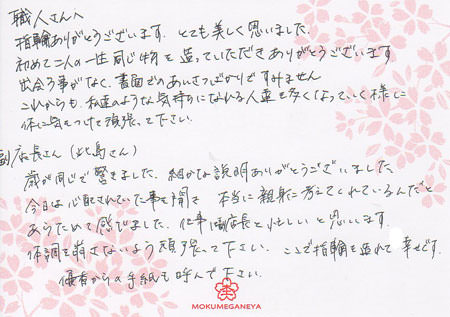 職人さんへ
指輪ありがとうございます。とても美しく思いました。
初めて二人の一生同じ物を造っていただきありがとうございます
出会う事がなく、書面でのあいさつばかりですみません
これからも、私達のような気持ちになれる人達が多くなっていく様に
体に気をつけて頑張って下さい。
副店長さん(比島さん)
歳が同じで驚きました。細かな説明ありがとうございました
今日は心配されていた事を聞き 本当に親身に考えてくれているんだと
あらためて感じました。仕事 副店長と忙しいと思います。
体調を崩さないよう頑張って下さい。ここで指輪を造れて幸せです。
優香からの手紙も呼んで下さい。
MOKUMEGANEYA